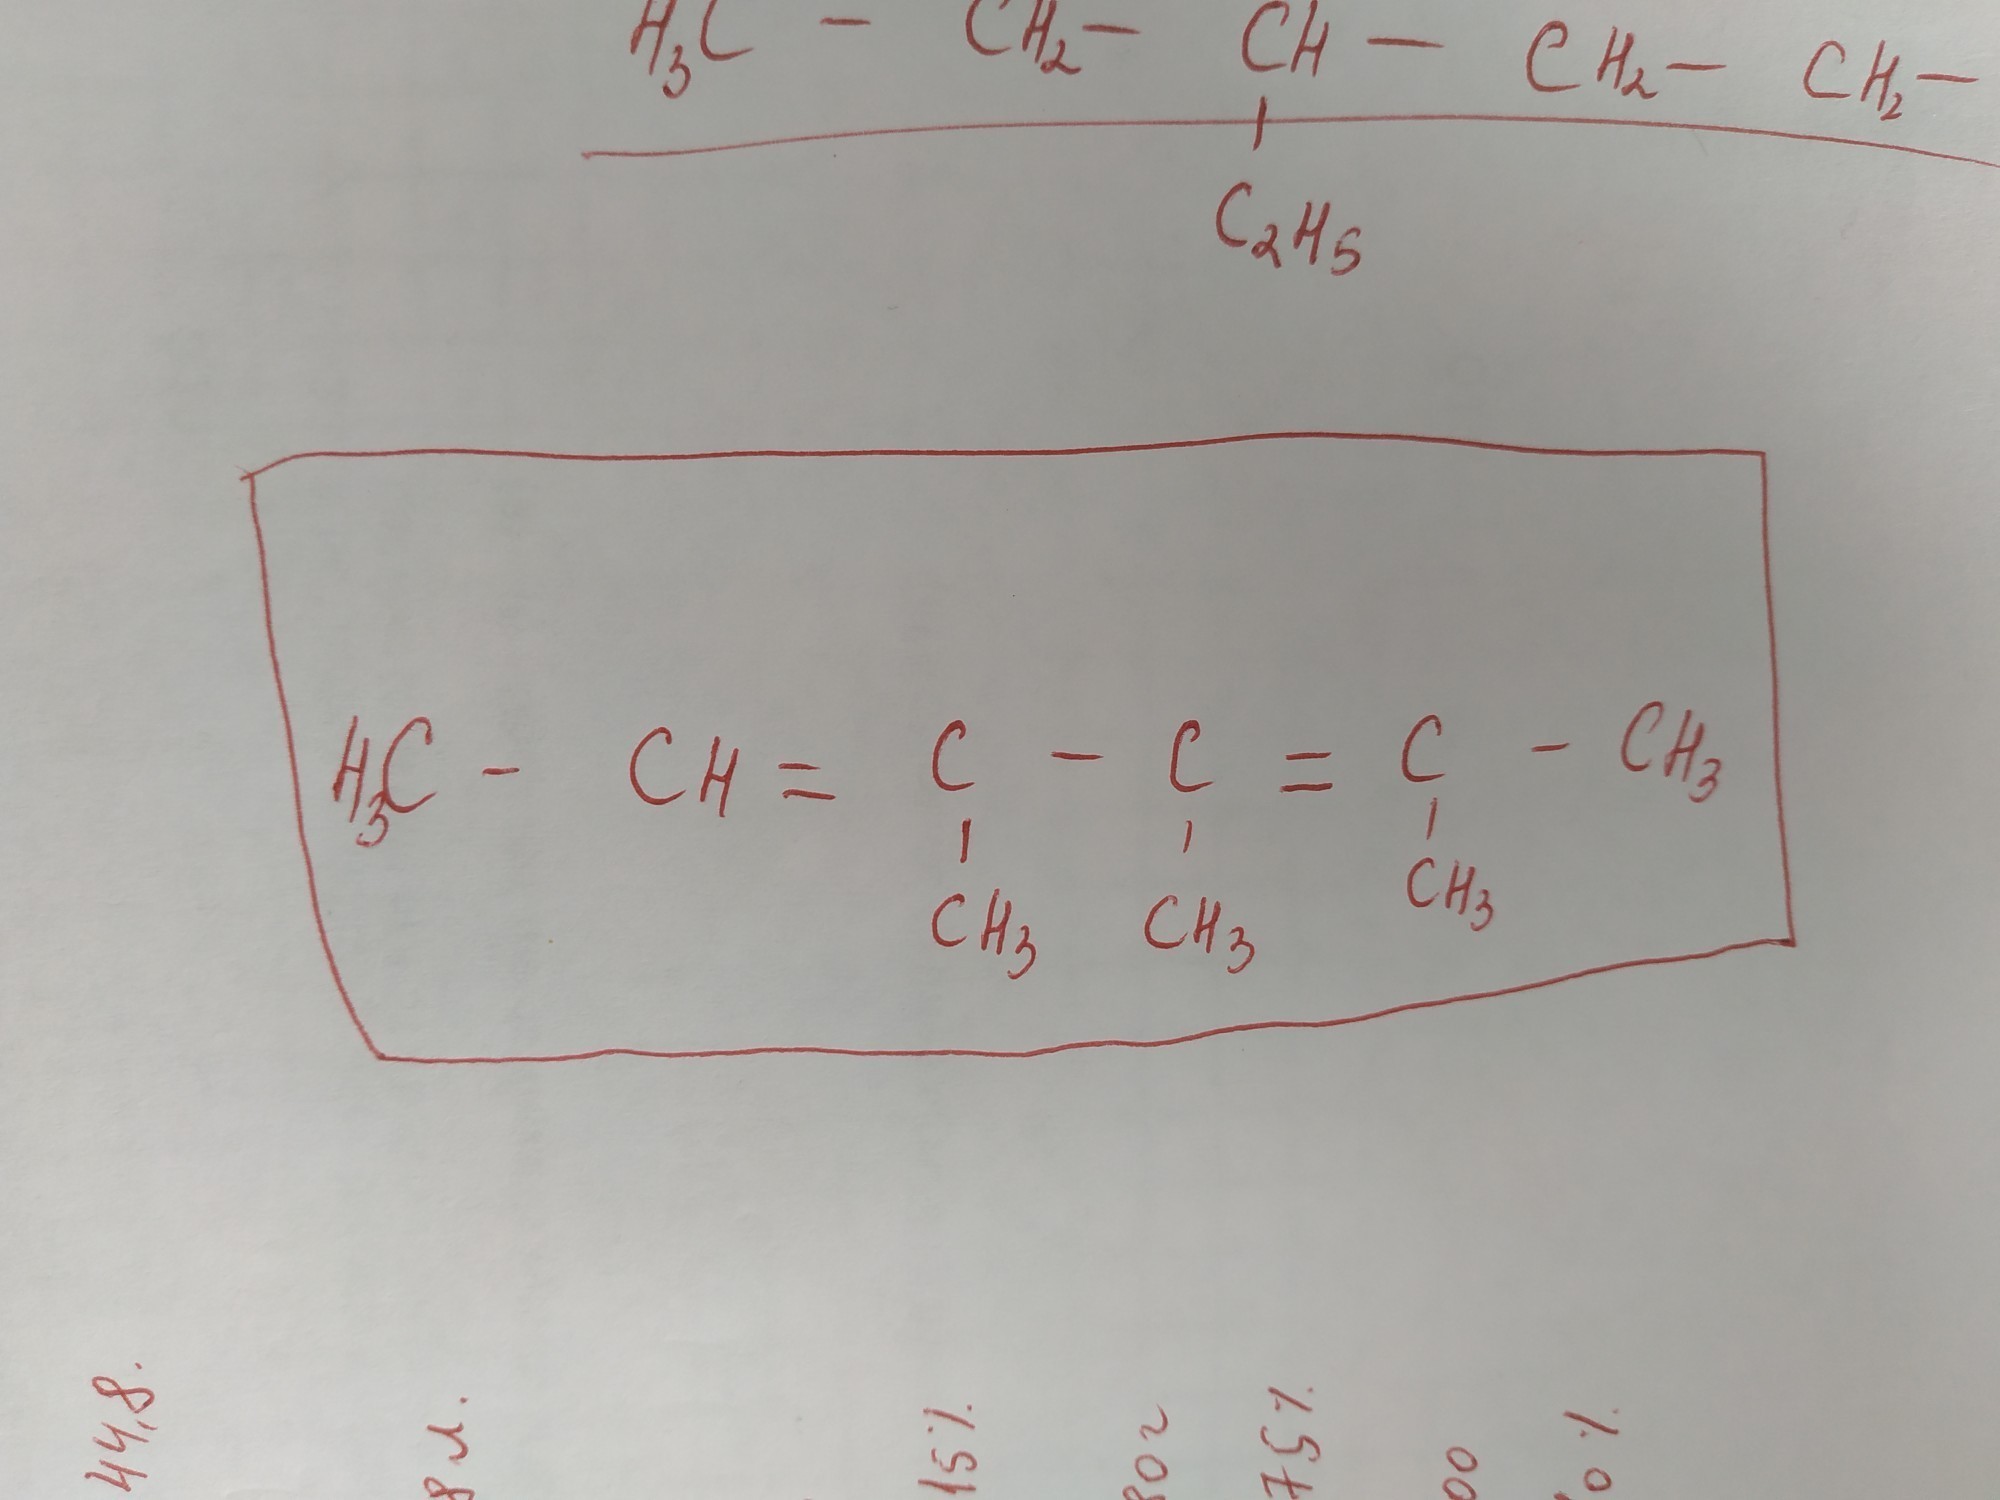 H₃C – CH₂ – CH – CH₂ – CH₂ –
C₂H₅
H₃C – CH = C – C = C – CH₃
CH₃ CH₃ CH₃
44,8.
8 л.
15%
80г
75%
00
0%